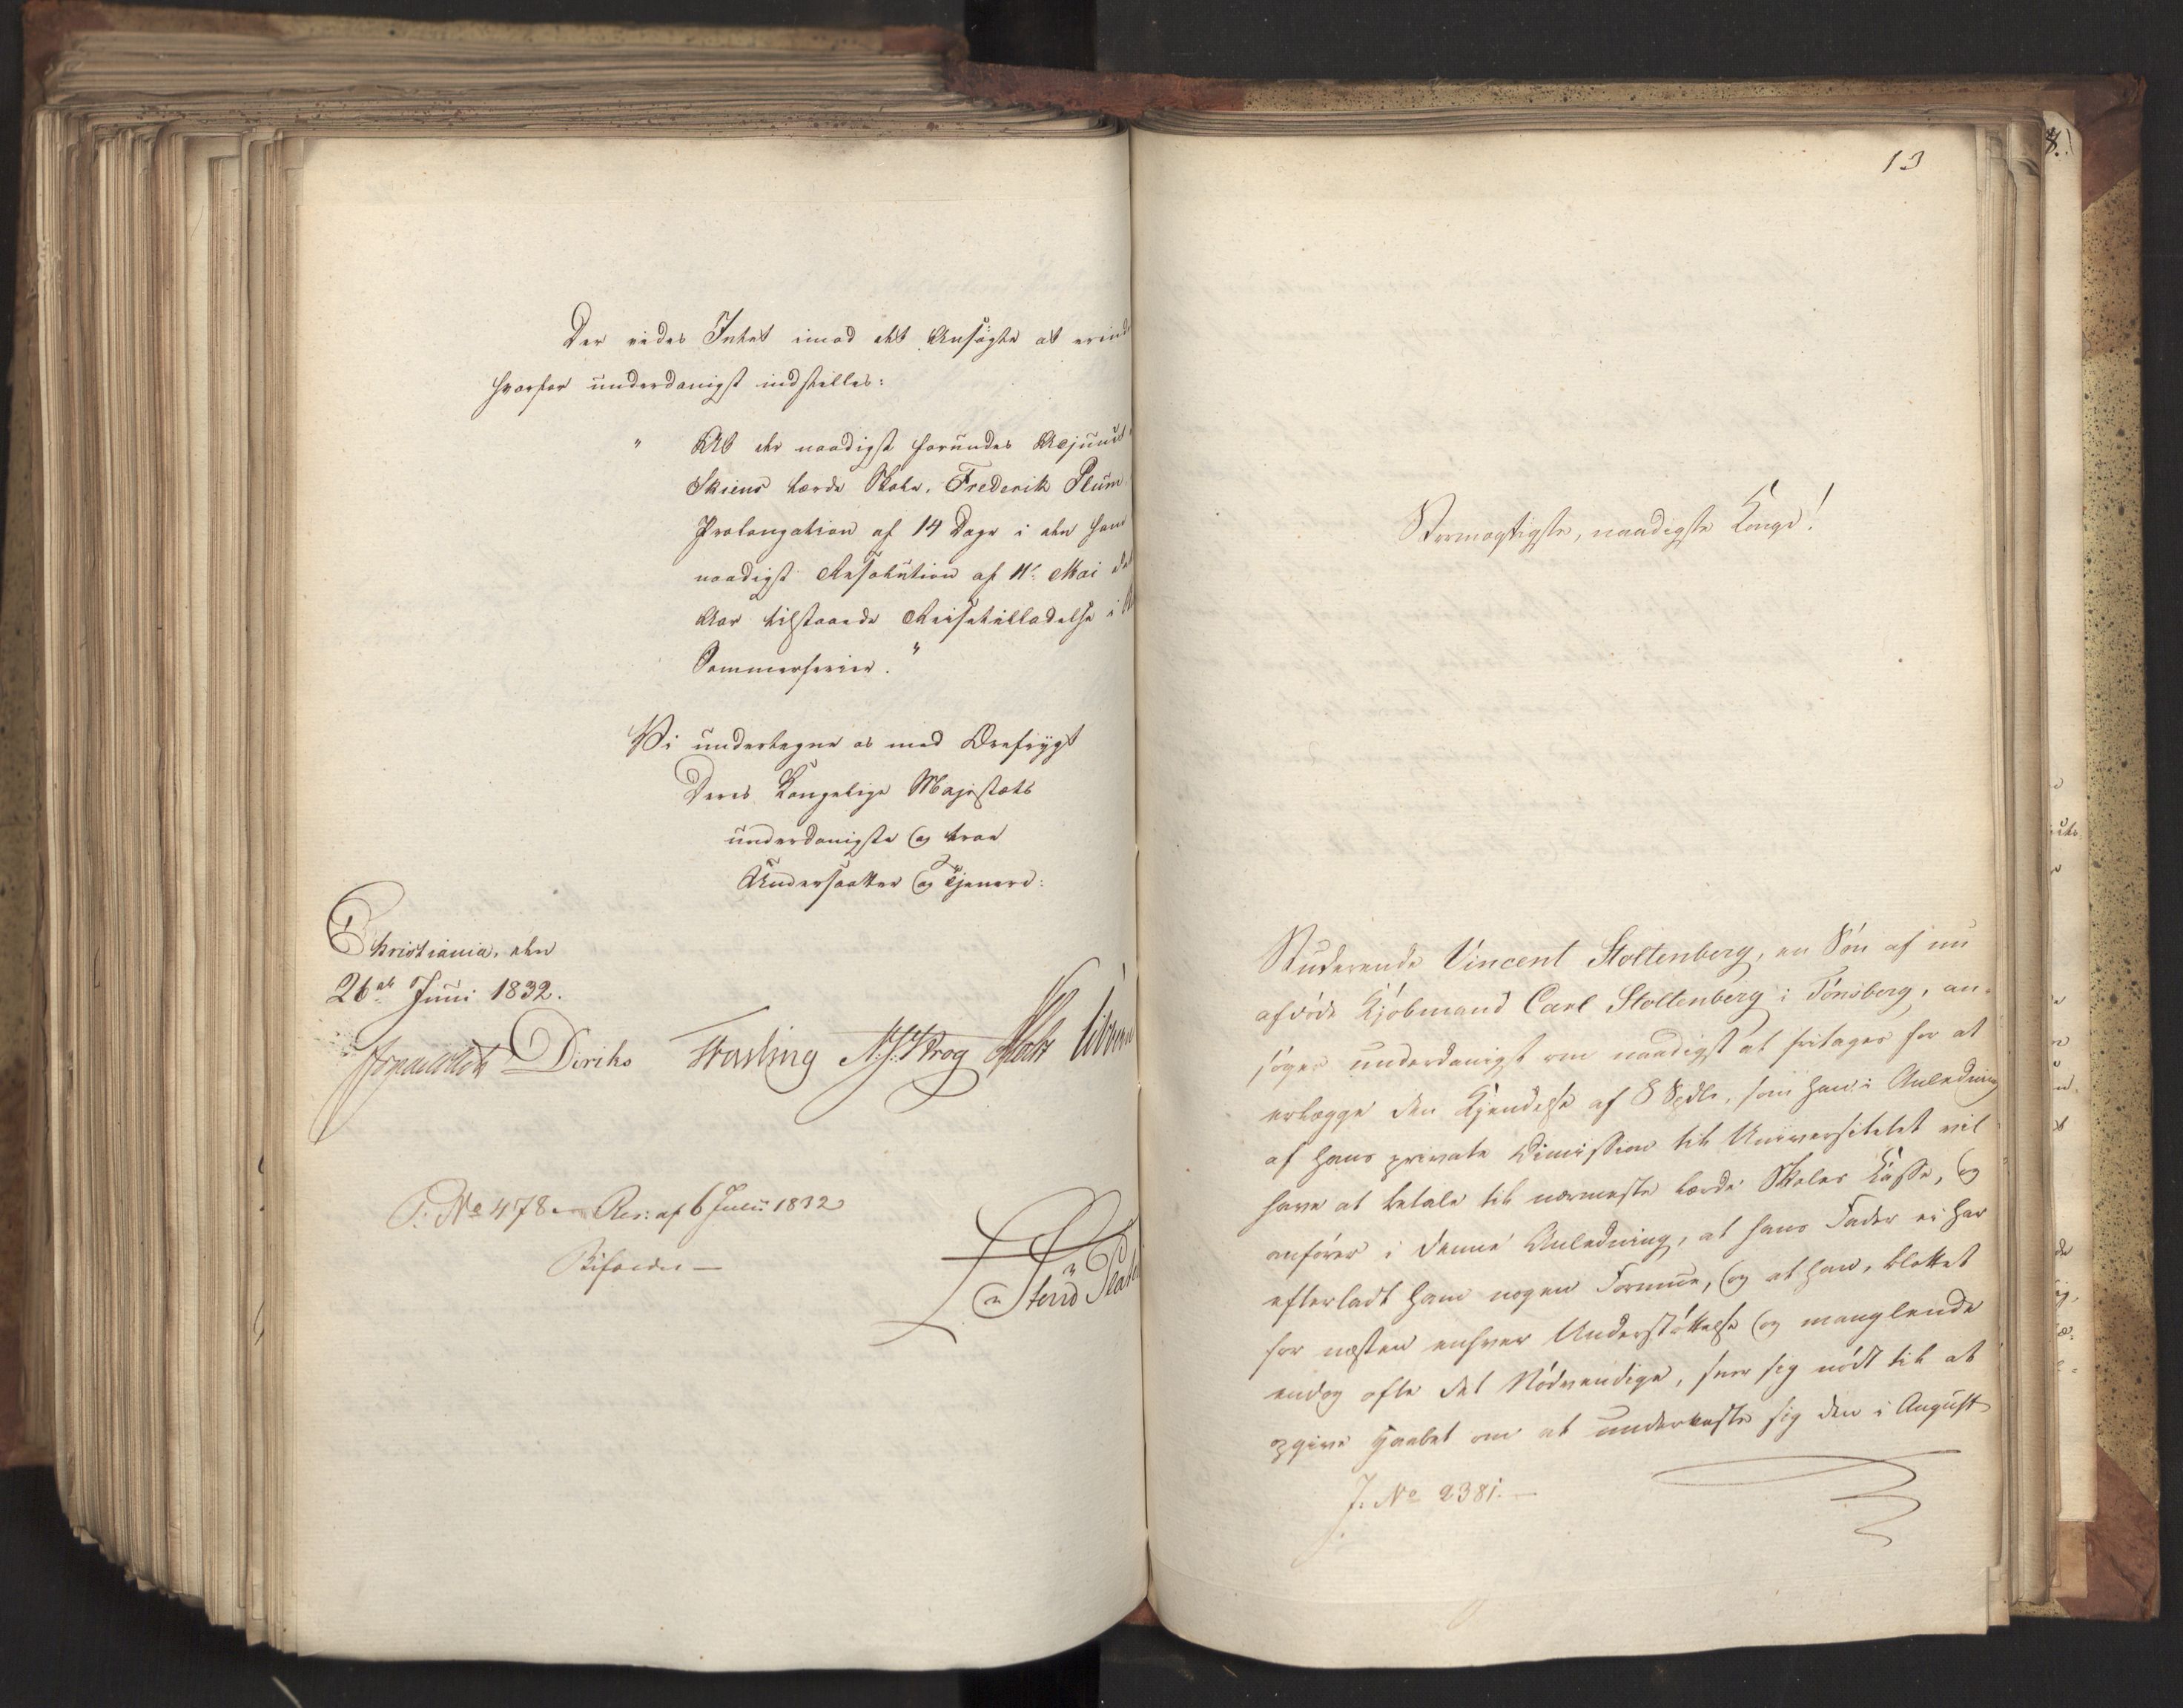 Der vides Intet imod det Ansøgte at erind
hvorfor underdanigst indstilles:
" At der naadigst forundes Adjunct
Skiens lærde Skole, Frederik Plum
Prolongation af 14 Dage i den ham
naadigst Resolution af 11te Mai d
Aar tilstaaede Reisetilladelse i
Sommerferien."
Vi undertegne os med Ærefrygt
Deres Kongelige Majestæts
underdanigste og troe
Undersaatter og Tjenere:
Christiania, den
26de Juni 1832.
Diriks Fasting N. J. Krog
P: No 478. Res: af 6 Julii 1832
Bifaldes —
13
Stormægtigste, naadigste Konge!
Studerende Vincent Stoltenberg, en Søn af nu
afdøde Kjøbmand Carl Stoltenberg i Tønsberg, an-
søger underdanigst om naadigst at fritages for at
erlægge den Kjendelse af 8 Spdlr, som han i Anledning
af hans private Dimission til Universitetet vil
have at betale til nærmeste lærde Skoles Kasse, og
anfører i denne Anledning, at hans Fader ei har
efterladt ham nogen Formue, og at han, blottet
for næsten enhver Understøttelse og manglende
endog ofte det Nødvendige, seer sig nødt til at
opgive Haabet om at underkaste sig den i August
J. No 2381. —